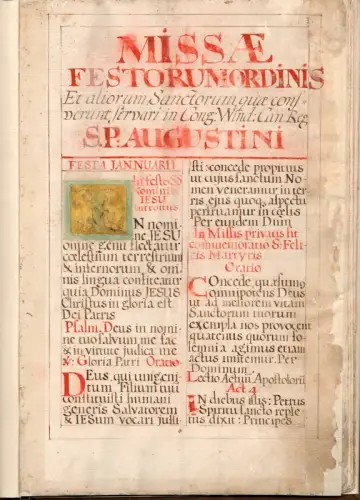 MISSÆ
FESTORUM ORDINIS
Et aliorum Sanctorum quæ cons-
verunt servari in Cong: Wind: Can: Reg
S.P. AUGUSTINI
FESTA JANNUARII
In festo SS
Nominis
JESU
Introitus
IN nomi-
ne JESU
omne genu flectatur
cœlestium terrestrium
& infernorum, & om-
nis lingua confiteatur
quia Dominus JESUS
Christus in gloria est
Dei Patris
Psalm: Deus in nomi-
ne tuo salvum me fac
& in virtute judica me
℣: Gloria Patri Oratio
DEus, qui unigeni-
tum Filium tuū
constituisti humani
generis Salvatorem
& JESUM vocari jussi-
sti: concede propitius
ut cujus sanctum No-
men veneramur in ter-
ris, ejus quoq: aspectu
perfruamur in cœlis
Per eundem Dum
In Missis privatis fit
commemoratio S: Feli-
cis Martyris
Oratio
COncede, quæsumus
omnipotens Deus
ut ad meliorem vitam
Sanctorum tuorum
exempla nos provocent
quatenus quorum so-
lemnia agimus etiam
actus imitemur. Per
Dominum.
Lectio Actuū Apostolorū
Act 4
IN diebus illis: Petrus
Spiritu sancto reple
tus dixit: Principes